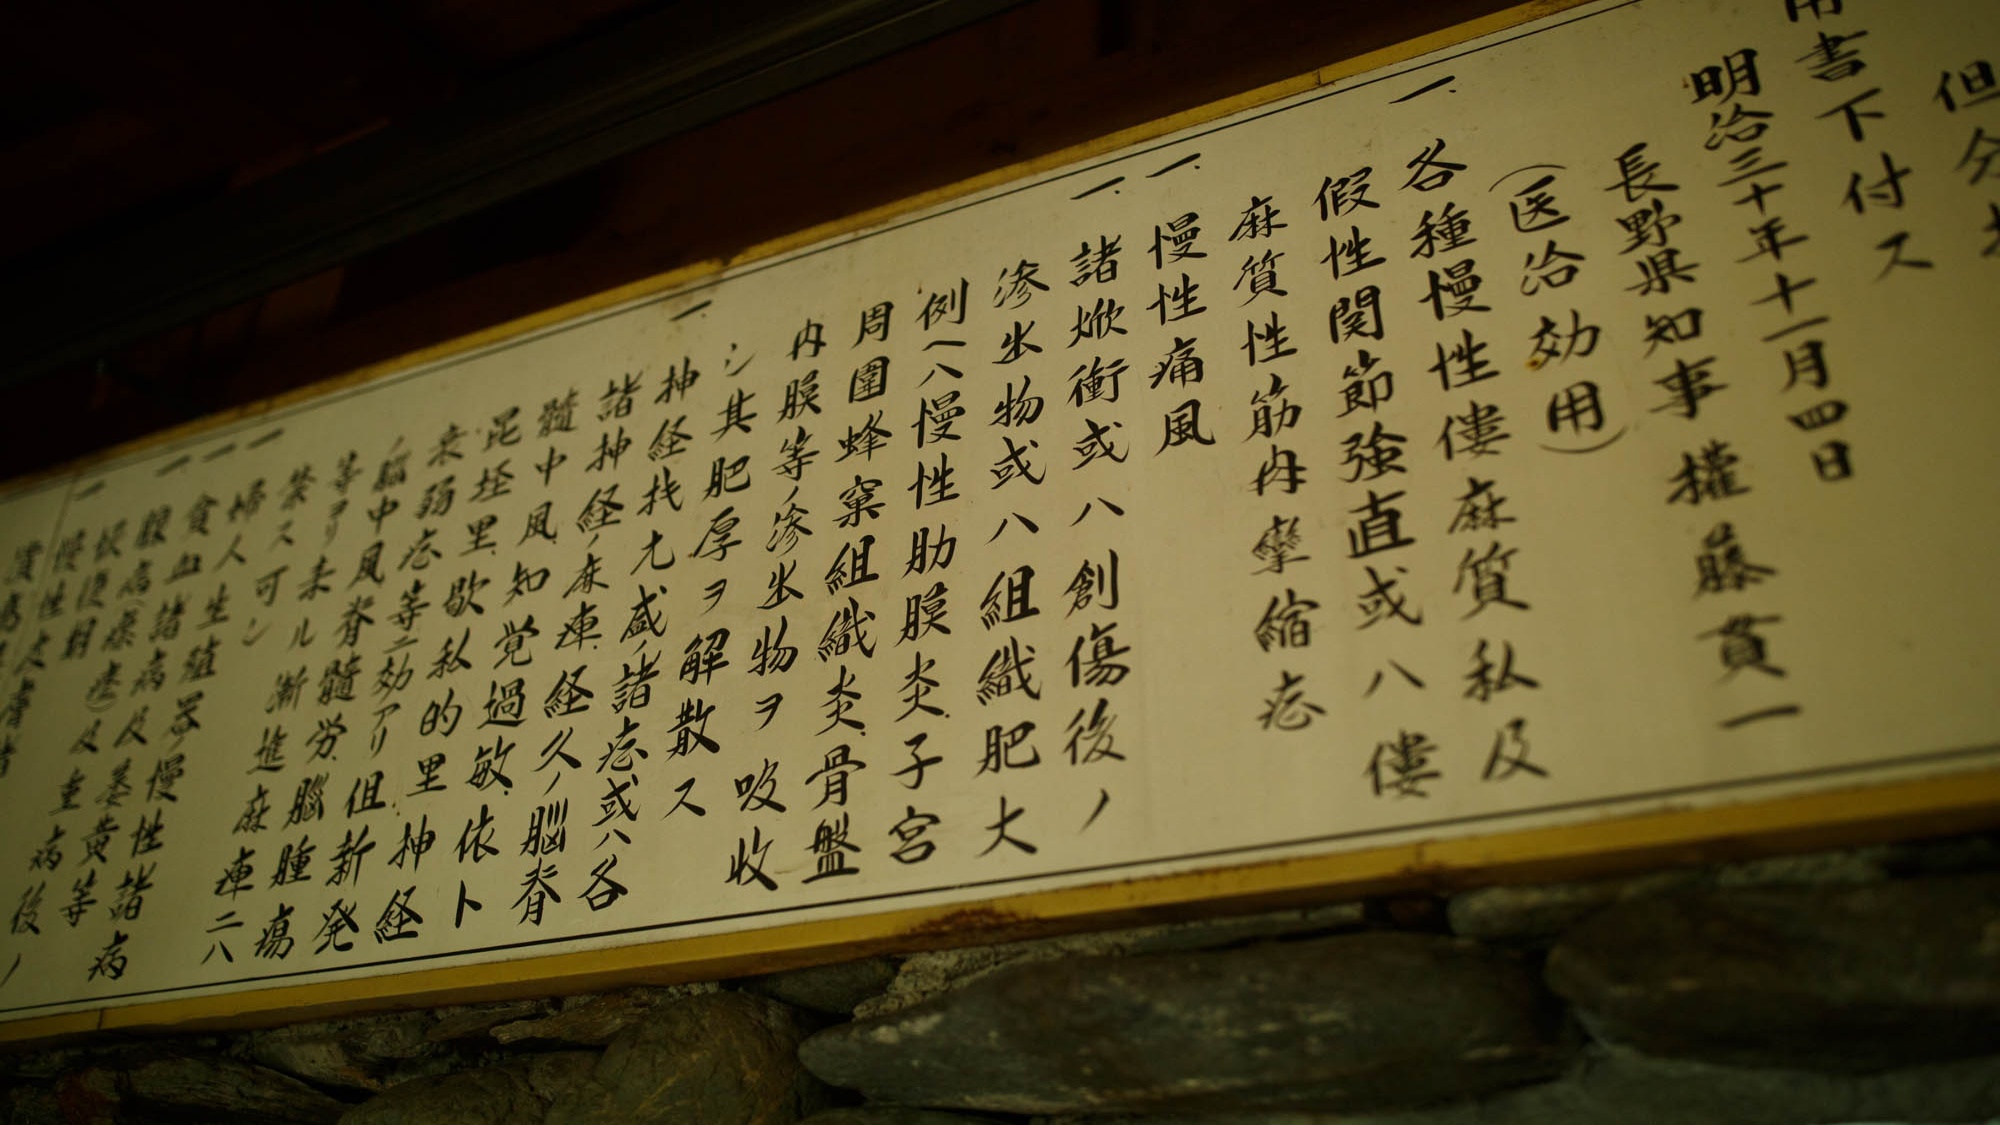 但分
用書下付ス
明治三十年十一月四日
長野県知事 權藤貫一
（医治効用）
一.各種慢性僂麻質私及
假性関節強直或ハ僂
麻質性筋肉攣縮症
一.慢性痛風
一.諸焮衝或ハ創傷後ノ
滲出物或ハ組織肥大
例ヘハ慢性肋膜炎子宮
周圍蜂窠組織炎骨盤
内膜等ノ滲出物ヲ吸收
シ其肥厚ヲ解散ス
一.神経抗尤盛ノ諸症或ハ各
諸神経ノ麻痺経久ノ脳脊
髓中風知覚過敏依ト
昆垤里歇私的里神経
衰弱症等ニ効アリ但新発
ノ脳中風脊髓労脳腫瘍
等ヨリ来ル漸進麻痺ニハ
禁ス可シ
一.婦人生殖器ノ慢性諸病
一.貧血諸病及萎黄等
一.及重病後ノ
一.慢性皮膚諸